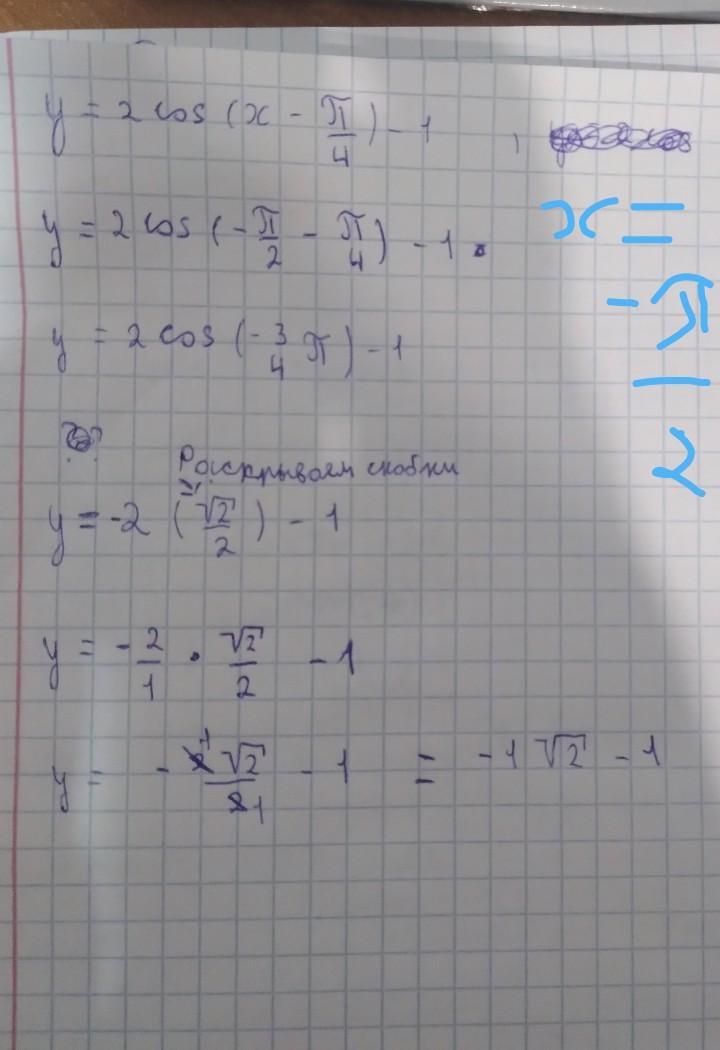 y = 2 cos (x - π/4) - 1 ,
x = -π/2
y = 2 cos (-π/2 - π/4) - 1.
y = 2 cos (-3/4 π) - 1
Раскрываем скобки
y = -2 (√2/2) - 1
y = -2/1 · √2/2 - 1
y = - 2 1 √2 / 2 1 - 1 = -1 √2 - 1